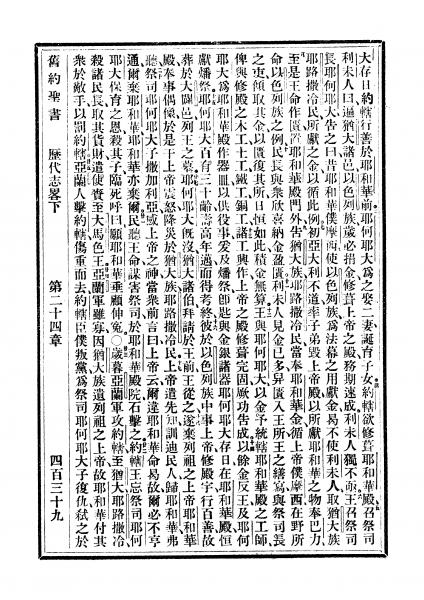 大存日約轄行善於耶和華前耶何耶大爲之娶二妻誕育子女約轄欲修葺耶和華殿召祭司
利未人曰遍猶大諸邑以色列族歲必捐金修葺上帝之殿務期速成利未人獨不亟王召祭司
長耶何耶大告之曰昔耶和華僕摩西使以色列族爲法幕之用獻金曷不使利未人取猶大族
耶路撒冷民所獻之金以循此例初亞大利不道率子弟毀上帝殿以所獻耶和華之物奉巴力
至是王命作匱置耶和華殿門外告猶大族耶路撒冷民當奉耶和華金循上帝僕摩西在野所
命以色列族之例民長與衆欣喜納金盈匱利未人見金已多舁匱入王所王之繕寫與祭司長
之吏傾取其金以匱復其所日恒如此積金無算王與耶何耶大以金予統轄耶和華殿之工師
俾與修殿之木工土工鐵工銅工諸工興作上帝之殿修葺完固厥功告成以餘金反王及耶何
耶大爲耶和華殿作器皿以供役事爰及燔祭卽匙與金銀諸器耶何耶大存日在耶和華殿恒
獻燔祭耶何耶大百有三十齡壽高年邁而得考終彼於以色列族中事上帝修殿宇行百善故
葬於大闢邑列王之墓耶何耶大旣沒猶大諸伯拜請於王前王從之遂棄列祖之上帝耶和華
殿奉事偶像於是干上帝震怒降災於猶大族耶路撒冷民上帝遣先知訓廸民人歸耶和華弗
聽祭司耶何耶大子撒加利亞感上帝之神當衆前言曰上帝云爾違耶和華命曷故爾必不亨
通爾棄耶和華耶和華亦棄爾民聽王命謀害祭司於耶和華殿院石擊之約轄王忘祭司耶何
耶大保育之恩殺其子臨死呼曰願耶和華垂顧伸寃○歲暮亞蘭軍攻約轄至猶大耶路撒冷
殺諸民長取其貨財遣使齎至大馬色王亞蘭軍雖寡因猶大族違列祖之上帝故耶和華付其
衆於敵手以罰約轄亞蘭人擊約轄傷重而去約轄臣僕叛黨爲祭司耶何耶大子復仇弑之於
舊約聖書 歷代志畧下 第二十四章 四百三十九